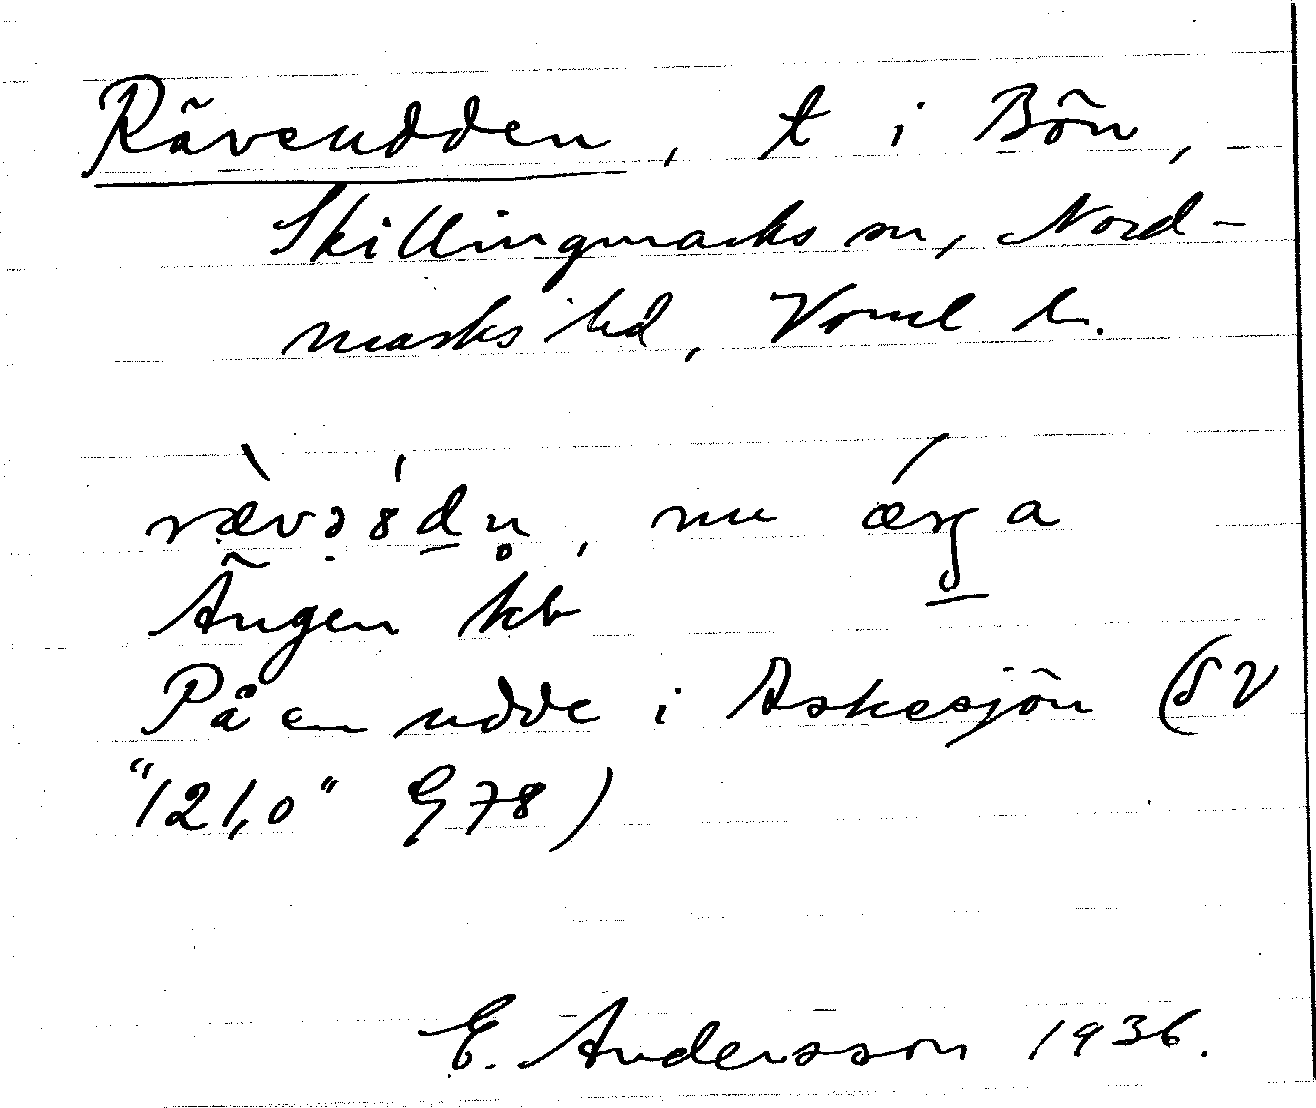 Rävudden, t i Bön,
Skillingmarks sn, Nord-
marks hd, Vrml l.
nu
Ängen kb
På en udde i Askesjön (SV
"121,0" G 78)
E. Andersson 1936.